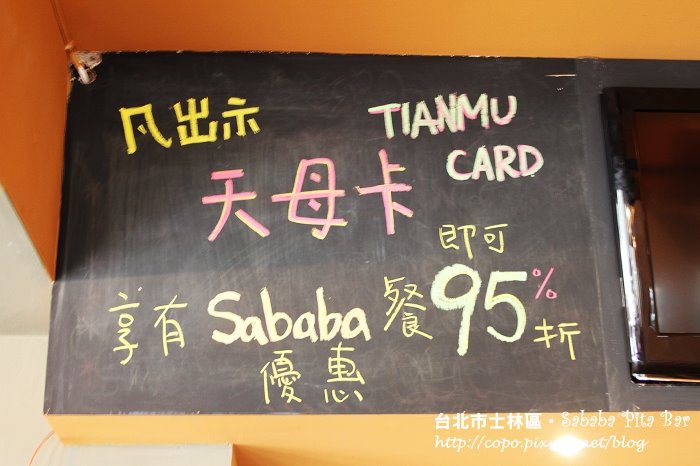 凡出示 TIANMU
天母卡 CARD
即可
享有 Sababa 餐 95%折
優惠
台北市士林區。Sababa Pita Bar
http://copo.pix.net/blog